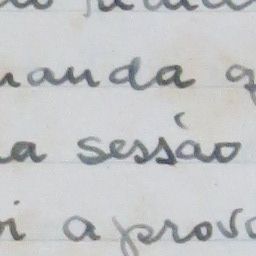 manda q
a sessão
oi aprova